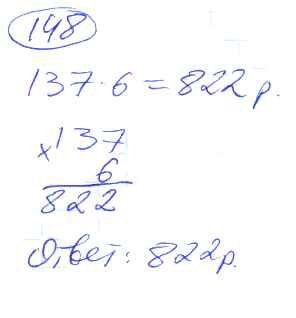 148
137 · 6 = 822 р.
× 137
6
822
Ответ: 822 р.